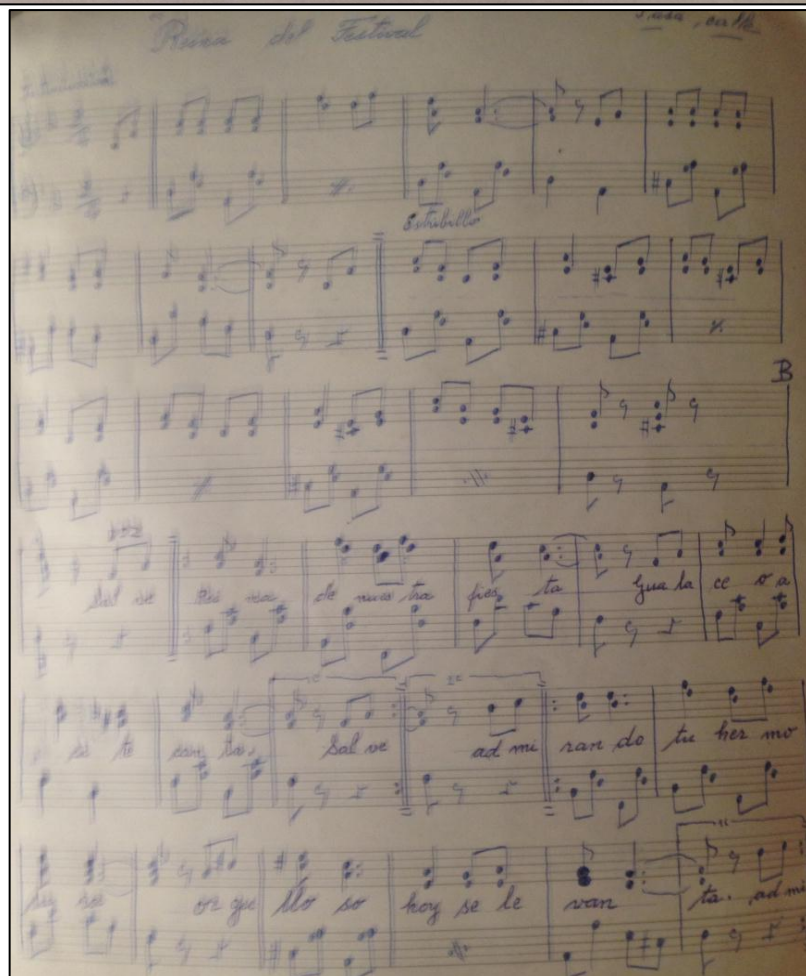 Reina del Festival
Estribillo
B
Sal ve Rei na de nues tra fies ta Gua la ce o a
si te can ta. 1ª Sal ve 2ª ad mi ran do tu her mo
su ra or gu llo so hoy se le van ta.. ad mi